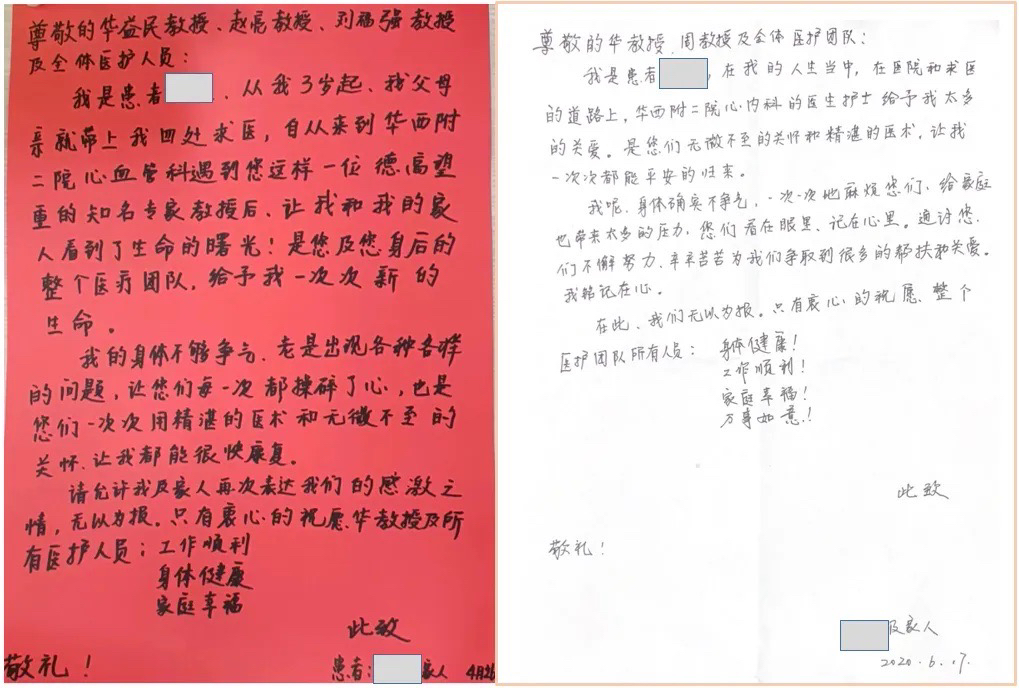 尊敬的华益民教授、赵亮教授、刘福强教授
及全体医护人员：
我是患者 、从我3岁起、我父母
亲就带上我四处求医，自从来到华西附
二院心血管科遇到您这样一位德高望
重的知名专家教授后、让我和我的家
人看到了生命的曙光！是您及您身后的
整个医疗团队，给予我一次次新的
生命。
我的身体不够争气、老是出现各种各样
的问题，让您们每一次都操碎了心，也是
您们一次次用精湛的医术和无微不至的
关怀、让我都能很快康复。
请允许我及家人再次表达我们的感激之
情，无以为报。只有衷心的祝愿华教授及所
有医护人员：工作顺利
身体健康
家庭幸福
此致
敬礼！
患者： 家人 4月26
尊敬的华教授、周教授及全体医护团队：
我是患者 ，在我的人生当中，在医院和求医
的道路上，华西附二院心内科的医生护士给予我太多
的关爱。是您们无微不至的关怀和精湛的医术，让我
一次次都能平安的归来。
我呢、身体确实不争气，一次一次地麻烦您们、给家庭
也带来太多的压力，您们看在眼里、记在心里。通过您
们不懈努力、辛辛苦苦为我们争取到很多的帮扶和关爱。
我铭记在心。
在此、我们无以为报。只有衷心的祝愿、整个
医护团队所有人员：身体健康！
工作顺利！
家庭幸福！
万事如意！
此致
敬礼！
及家人
2020.6.17.